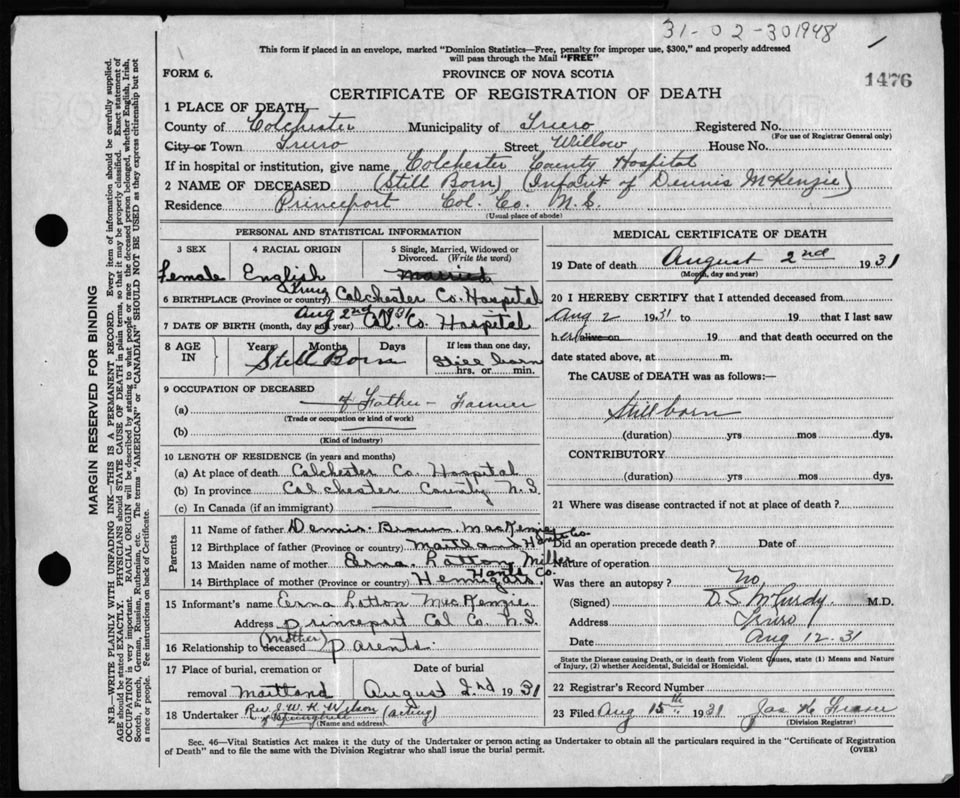 31-02-301948
This form if placed in an envelope, marked "Dominion Statistics—Free, penalty for improper use, $300," and properly addressed
will pass through the Mail "FREE"
FORM 6.
PROVINCE OF NOVA SCOTIA
1476
CERTIFICATE OF REGISTRATION OF DEATH
1 PLACE OF DEATH—
County of Colchester Municipality of Truro Registered No.
(For use of Registrar General only)
City or Town Truro Street, Willow House No.
If in hospital or institution, give name Colchester County Hospital
2 NAME OF DECEASED (Still Born) (Infant of Dennis McKenzie)
Residence Princeport Col. Co. N.S.
(Usual place of abode)
PERSONAL AND STATISTICAL INFORMATION
3 SEX 4 RACIAL ORIGIN 5 Single, Married, Widowed or Divorced. (Write the word)
Female English Married
6 BIRTHPLACE (Province or country) Truro Colchester Co. Hospital
7 DATE OF BIRTH (month, day and year) Aug 2nd 1931 Col. Co. Hospital
8 AGE IN Years Months Days If less than one day,
Still Born Still born
hrs. or min.
9 OCCUPATION OF DECEASED
(a) of Father - Farmer
(Trade or occupation or kind of work)
(b)
(Kind of industry)
10 LENGTH OF RESIDENCE (in years and months)
(a) At place of death Colchester Co. Hospital
(b) In province Colchester County N.S.
(c) In Canada (if an immigrant)
Parents
11 Name of father Dennis Brown MacKenzie
12 Birthplace of father (Province or country) Maitland Hants Co.
13 Maiden name of mother Erna Miller
14 Birthplace of mother (Province or country) Hants Co.
15 Informant's name Erna MacKenzie
Address Princeport Col Co. N.S.
16 Relationship to deceased (Mother) Parents
17 Place of burial, cremation or removal Maitland
Date of burial August 2nd 1931
18 Undertaker Rev. J. W. K. Wilson (acting)
of Springhill
(Name and address)
MEDICAL CERTIFICATE OF DEATH
19 Date of death August 2nd 1931
(Month, day and year)
20 I HEREBY CERTIFY that I attended deceased from
Aug 2 1931 to 19 that I last saw
her alive on 19 and that death occurred on the
date stated above, at m.
The CAUSE of DEATH was as follows:—
Stillborn
(duration) yrs mos dys.
CONTRIBUTORY
(duration) yrs. mos dys.
21 Where was disease contracted if not at place of death?
Did an operation precede death? Date of
Nature of operation
Was there an autopsy? No
(Signed) D.S. McCurdy M.D.
Address Truro
Date Aug 12.31
State the Disease causing Death, or in death from Violent Causes, state (1) Means and Nature
of Injury, (2) whether Accidental, Suicidal or Homicidal.
22 Registrar's Record Number
23 Filed Aug 15th 1931 Jas K Fraser
(Division Registrar)
Sec. 46—Vital Statistics Act makes it the duty of the Undertaker or person acting as Undertaker to obtain all the particulars required in the "Certificate of Registration
of Death" and to file the same with the Division Registrar who shall issue the burial permit.
(OVER)
MARGIN RESERVED FOR BINDING
N.B.—WRITE PLAINLY WITH UNFADING INK—THIS IS A PERMANENT RECORD. Every item of information should be carefully supplied.
AGE should be stated EXACTLY. PHYSICIANS should STATE CAUSE OF DEATH in plain terms, so that it may be properly classified. Exact statement of
OCCUPATION is very important. RACIAL ORIGIN will be described by stating to what people or race the deceased person belonged, whether English, Irish,
Scotch, French, German, Russian, Ruthenian, etc. The terms "AMERICAN" or "CANADIAN" SHOULD NOT BE USED as they express citizenship but not
a race or people. See instructions on back of Certificate.